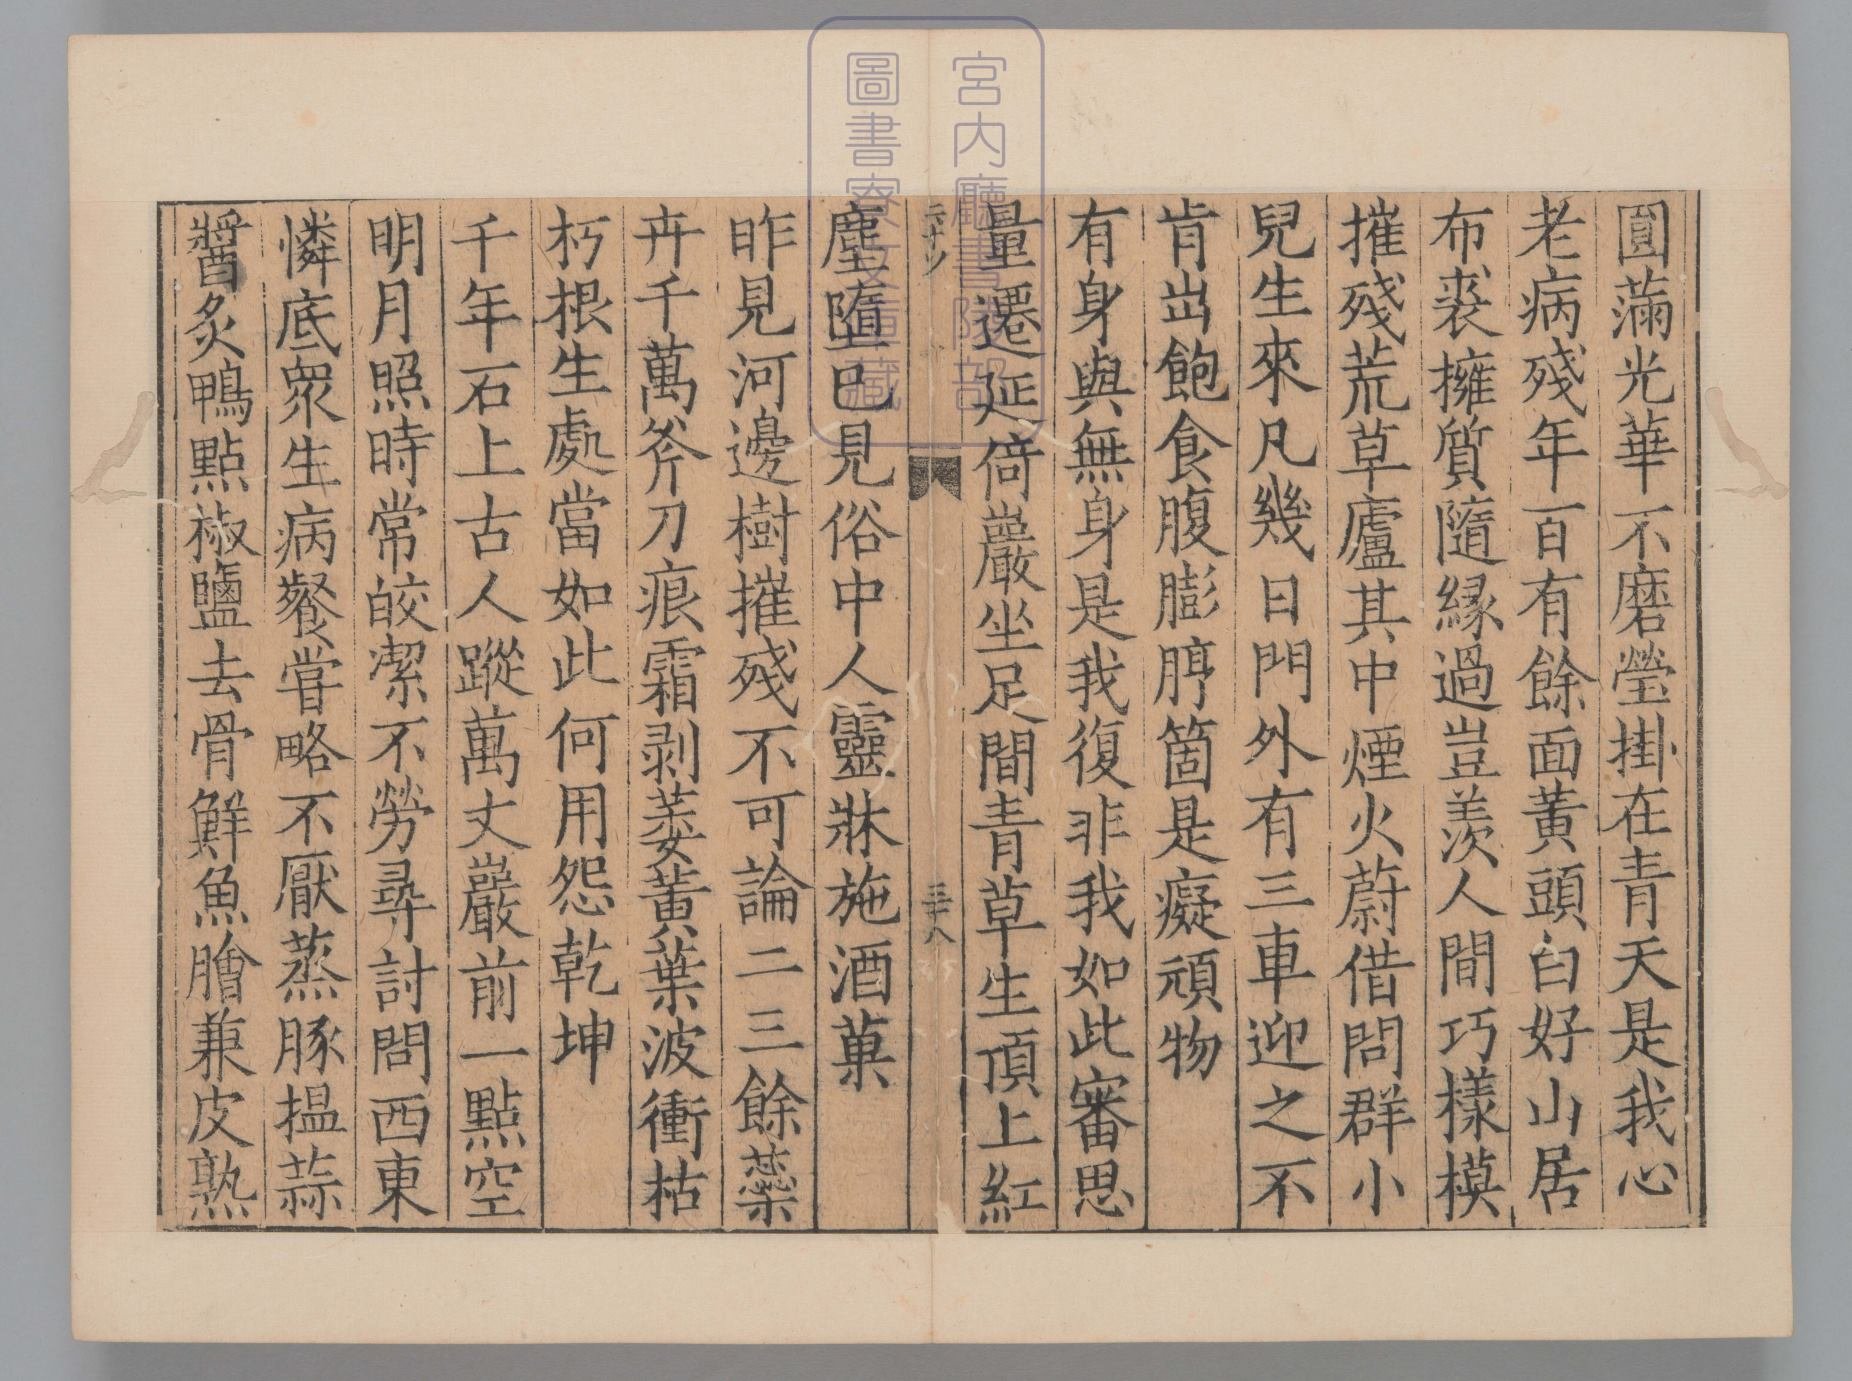 圎滿光華不磨瑩掛在青天是我心
老病殘年百有餘面黃頭白好山居
布裘擁質隨縁過豈羨人間巧樣模
摧殘荒草廬其中煙火蔚借問群小
兒生來凡幾日門外有三車迎之不
肯出飽食腹膨脝箇是癡頑物
有身與無身是我復非我如此審思
量遷延倚巖坐足間青草生頂上紅
塵墮已見俗中人靈牀施酒菓
昨見河邊樹摧殘不可論二三餘蘂
卉千萬斧刀痕霜剥萎黃葉波衝枯
朽根生處當如此何用怨乾坤
千年石上古人蹤萬丈巖前一點空
明月照時常皎潔不勞尋討問西東
憐底衆生病餐嘗略不厭蒸豚揾蒜
醬炙鴨點椒鹽去骨鮮魚膾兼皮熟
宮内廳書陵部
圖書寮文庫藏